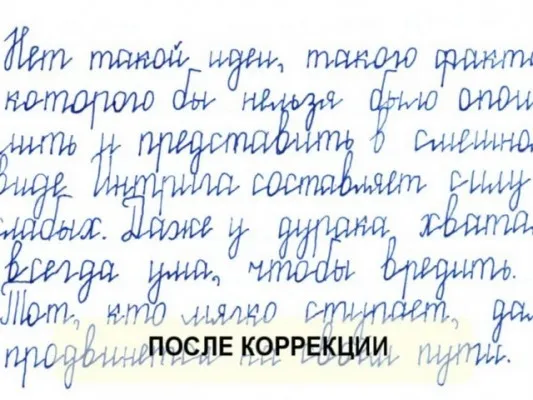 Нет такой идеи, такого факта
которого бы нельзя было опош
лить и представить в смешно
виде. Интрига составляет силу
слабых. Даже у дурака хвата
всегда ума, чтобы вредить.
Тот, кто мягко ступает, дал
продвинется на своем пути.
ПОСЛЕ КОРРЕКЦИИ